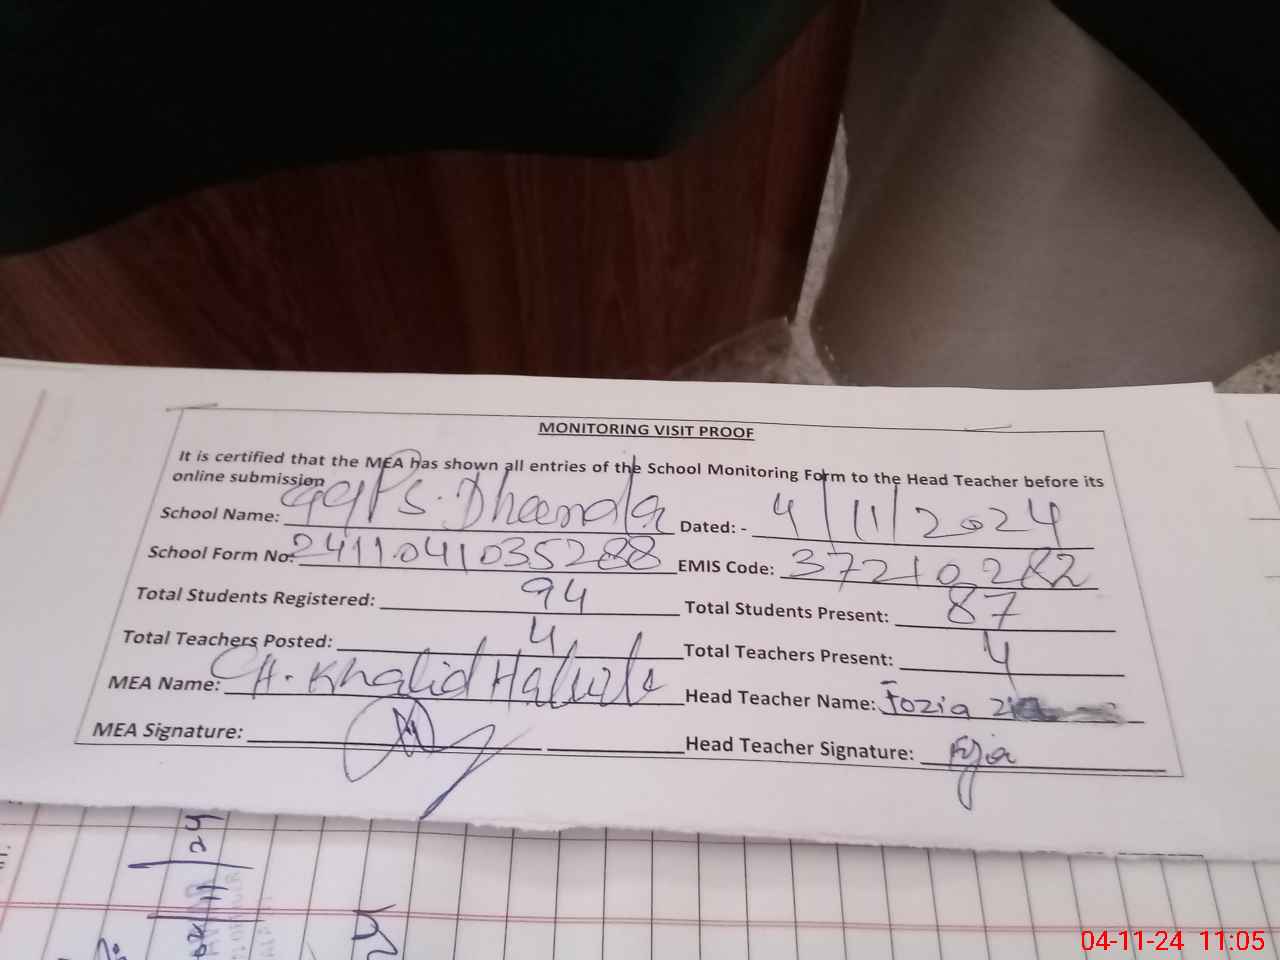 MONITORING VISIT PROOF
It is certified that the MEA has shown all entries of the School Monitoring Form to the Head Teacher before its
online submission
School Name: GGPS. Dheenda Dated: - 4/11/2024
School Form No: 2411041035288 EMIS Code: 37210282
Total Students Registered: 94 Total Students Present: 87
Total Teachers Posted: 4 Total Teachers Present: 4
MEA Name: CH. Khalid Head Teacher Name: Fozia
MEA Signature: Head Teacher Signature:
04-11-24 11:05